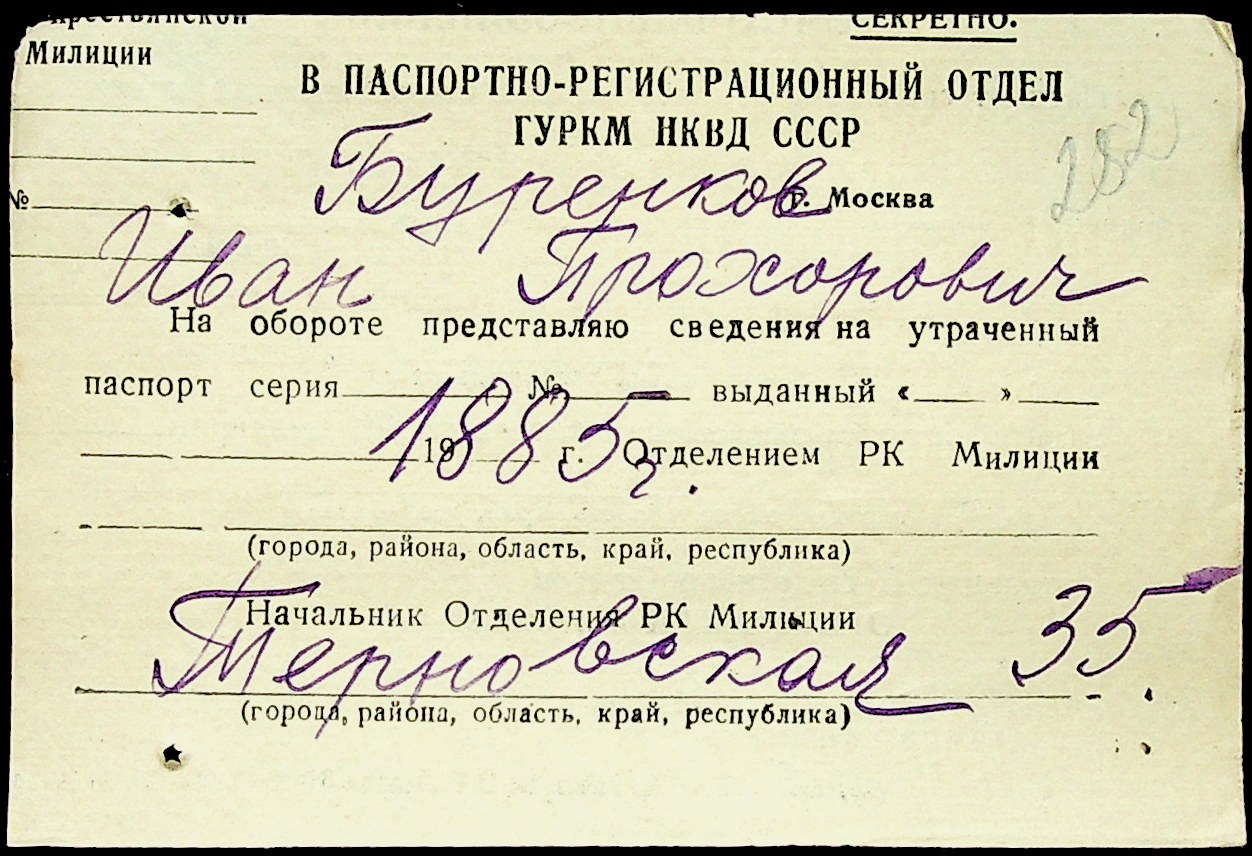 СЕКРЕТНО.
Милиции
В ПАСПОРТНО-РЕГИСТРАЦИОННЫЙ ОТДЕЛ
ГУРКМ НКВД СССР
282
Буренков
№ г. Москва
Иван Прохорович
На обороте представляю сведения на утраченный
паспорт серия № выданный « »
1885 г.
19 г. Отделением РК Милиции
(города, района, область, край, республика)
Начальник Отделения РК Милиции
Терновская 35.
(города, района, область, край, республика)